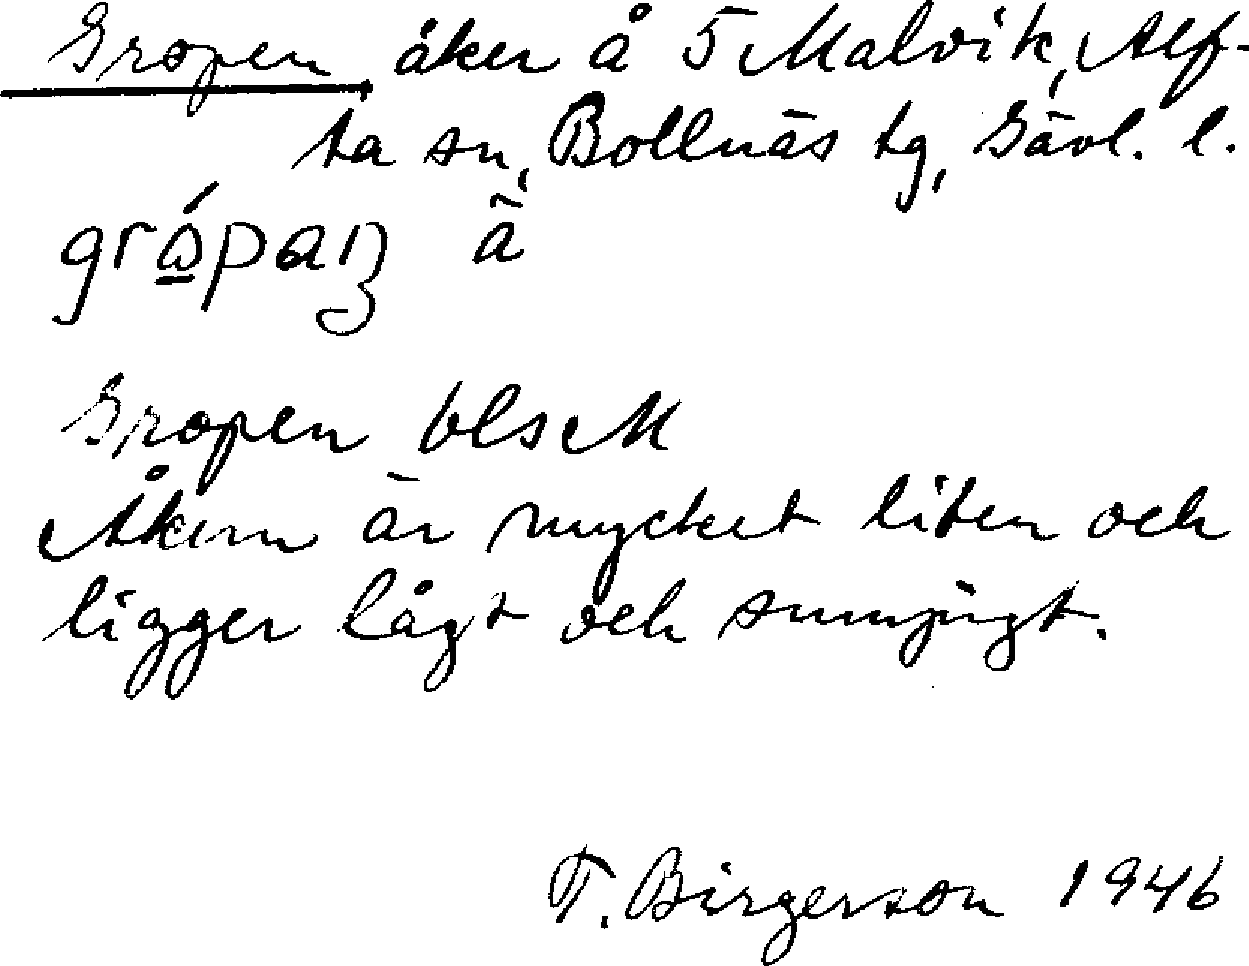 Gropen, åker å 5 Malvik, Alf-
ta sn, Bollnäs tg, Gävl. l.
grópaŋ ã
Gropen bls M
Åkern är mycket liten och
ligger lågt och sumpigt.
T. Birgerson 1946